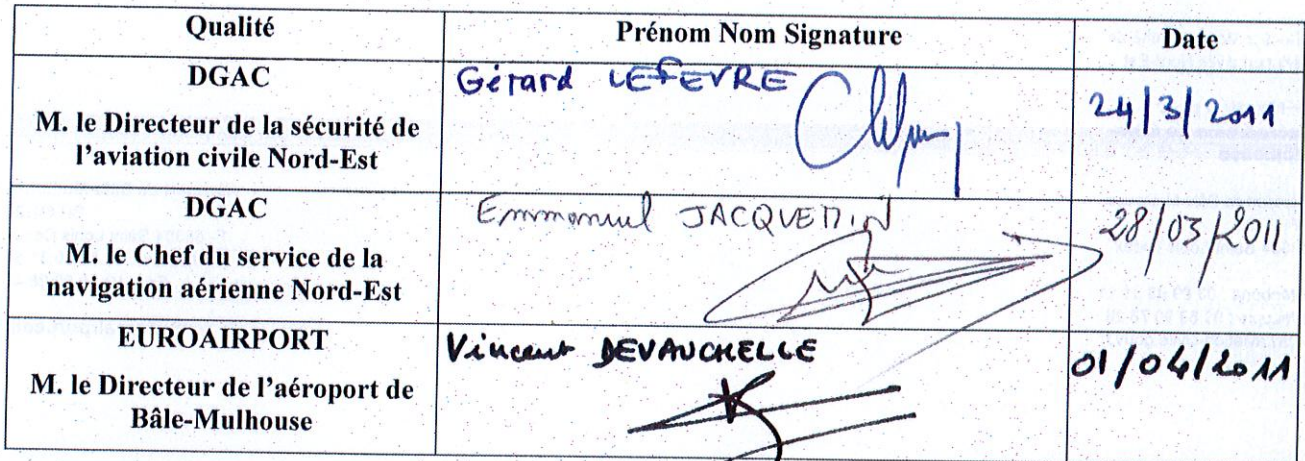 Qualité Prénom Nom Signature Date
DGAC
M. le Directeur de la sécurité de
l'aviation civile Nord-Est
Gérard LEFEVRE
24/3/2011
DGAC
M. le Chef du service de la
navigation aérienne Nord-Est
Emmanuel JACQUEMIN
28/03/2011
EUROAIRPORT
M. le Directeur de l'aéroport de
Bâle-Mulhouse
Vincent DEVAUCHELLE
01/04/2011